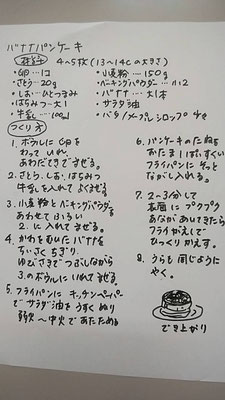 バナナパンケーキ
材料 4〜5枚(13〜14cの大きさ)
・卵…1コ
・さとう…20g
・しお…ひとつまみ
・はちみつ…大1
・牛乳…100ml
・小麦粉…150g
・ベーキングパウダー…小2
・バナナ…大1本
・サラダ油
・バター/メープルシロップ
つくり方
1. ボウルに卵を
わって いれ、
あわだてきでまぜる。
2. さとう、しお、はちみつ
牛乳を入れて よくまぜる。
3. 小麦粉とベーキングパウダーを
あわせてふるい
2. に入れて まぜる。
4. かわをむいたバナナを
ちいさく ちぎり、
ゆびさきでつぶしながら
3.のボウルに いれてまぜる。
5. フライパンに キッチンペーパー
で サラダ油を うすく ぬり
弱火〜中火であたためる
6. パンケーキのたねを
おたま1ぱいすくい
フライパンに そっと
ながし入れる。
7. 2〜3分して
表面に プクプク
あながあいてきたら
フライがえしで
ひっくり かえす。
8. うらも 同じように
やく。
でき上がり